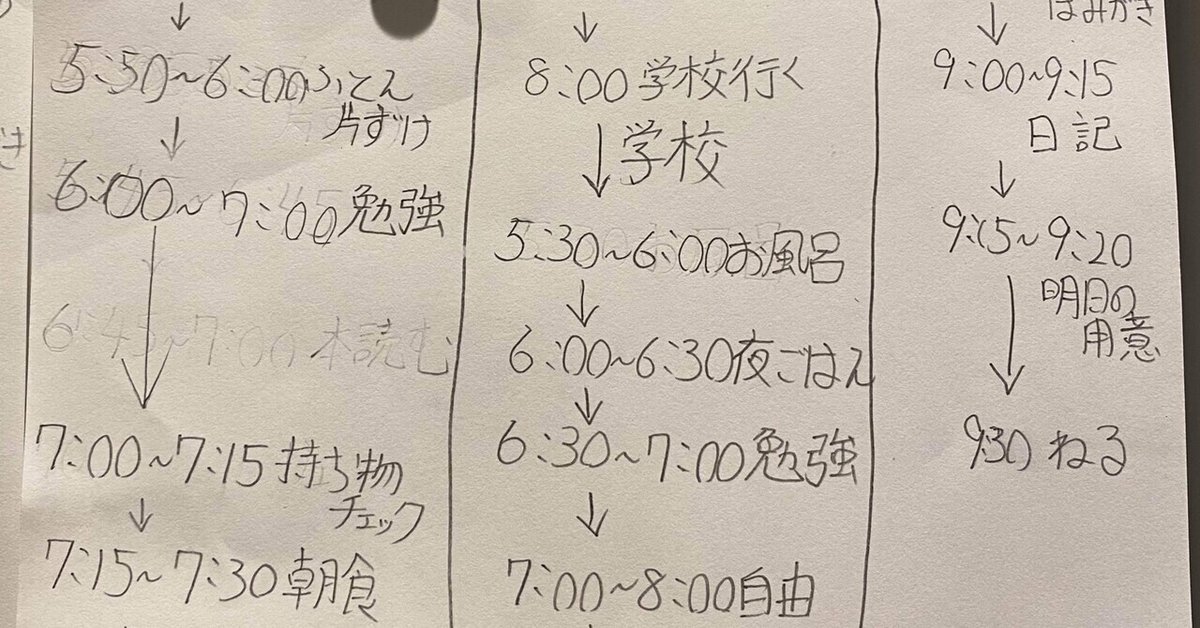 5:50~6:00ふとん
片ずけ
6:00~7:00勉強
6:45~7:00 本読む
7:00~7:15 持ち物
チェック
7:15~7:30朝食
8:00学校行く
学校
5:30~6:00お風呂
6:00~6:30夜ごはん
6:30~7:00勉強
7:00~8:00自由
はみがき
9:00~9:15
日記
9:15~9:20
明日の
用意
9:30 ねる